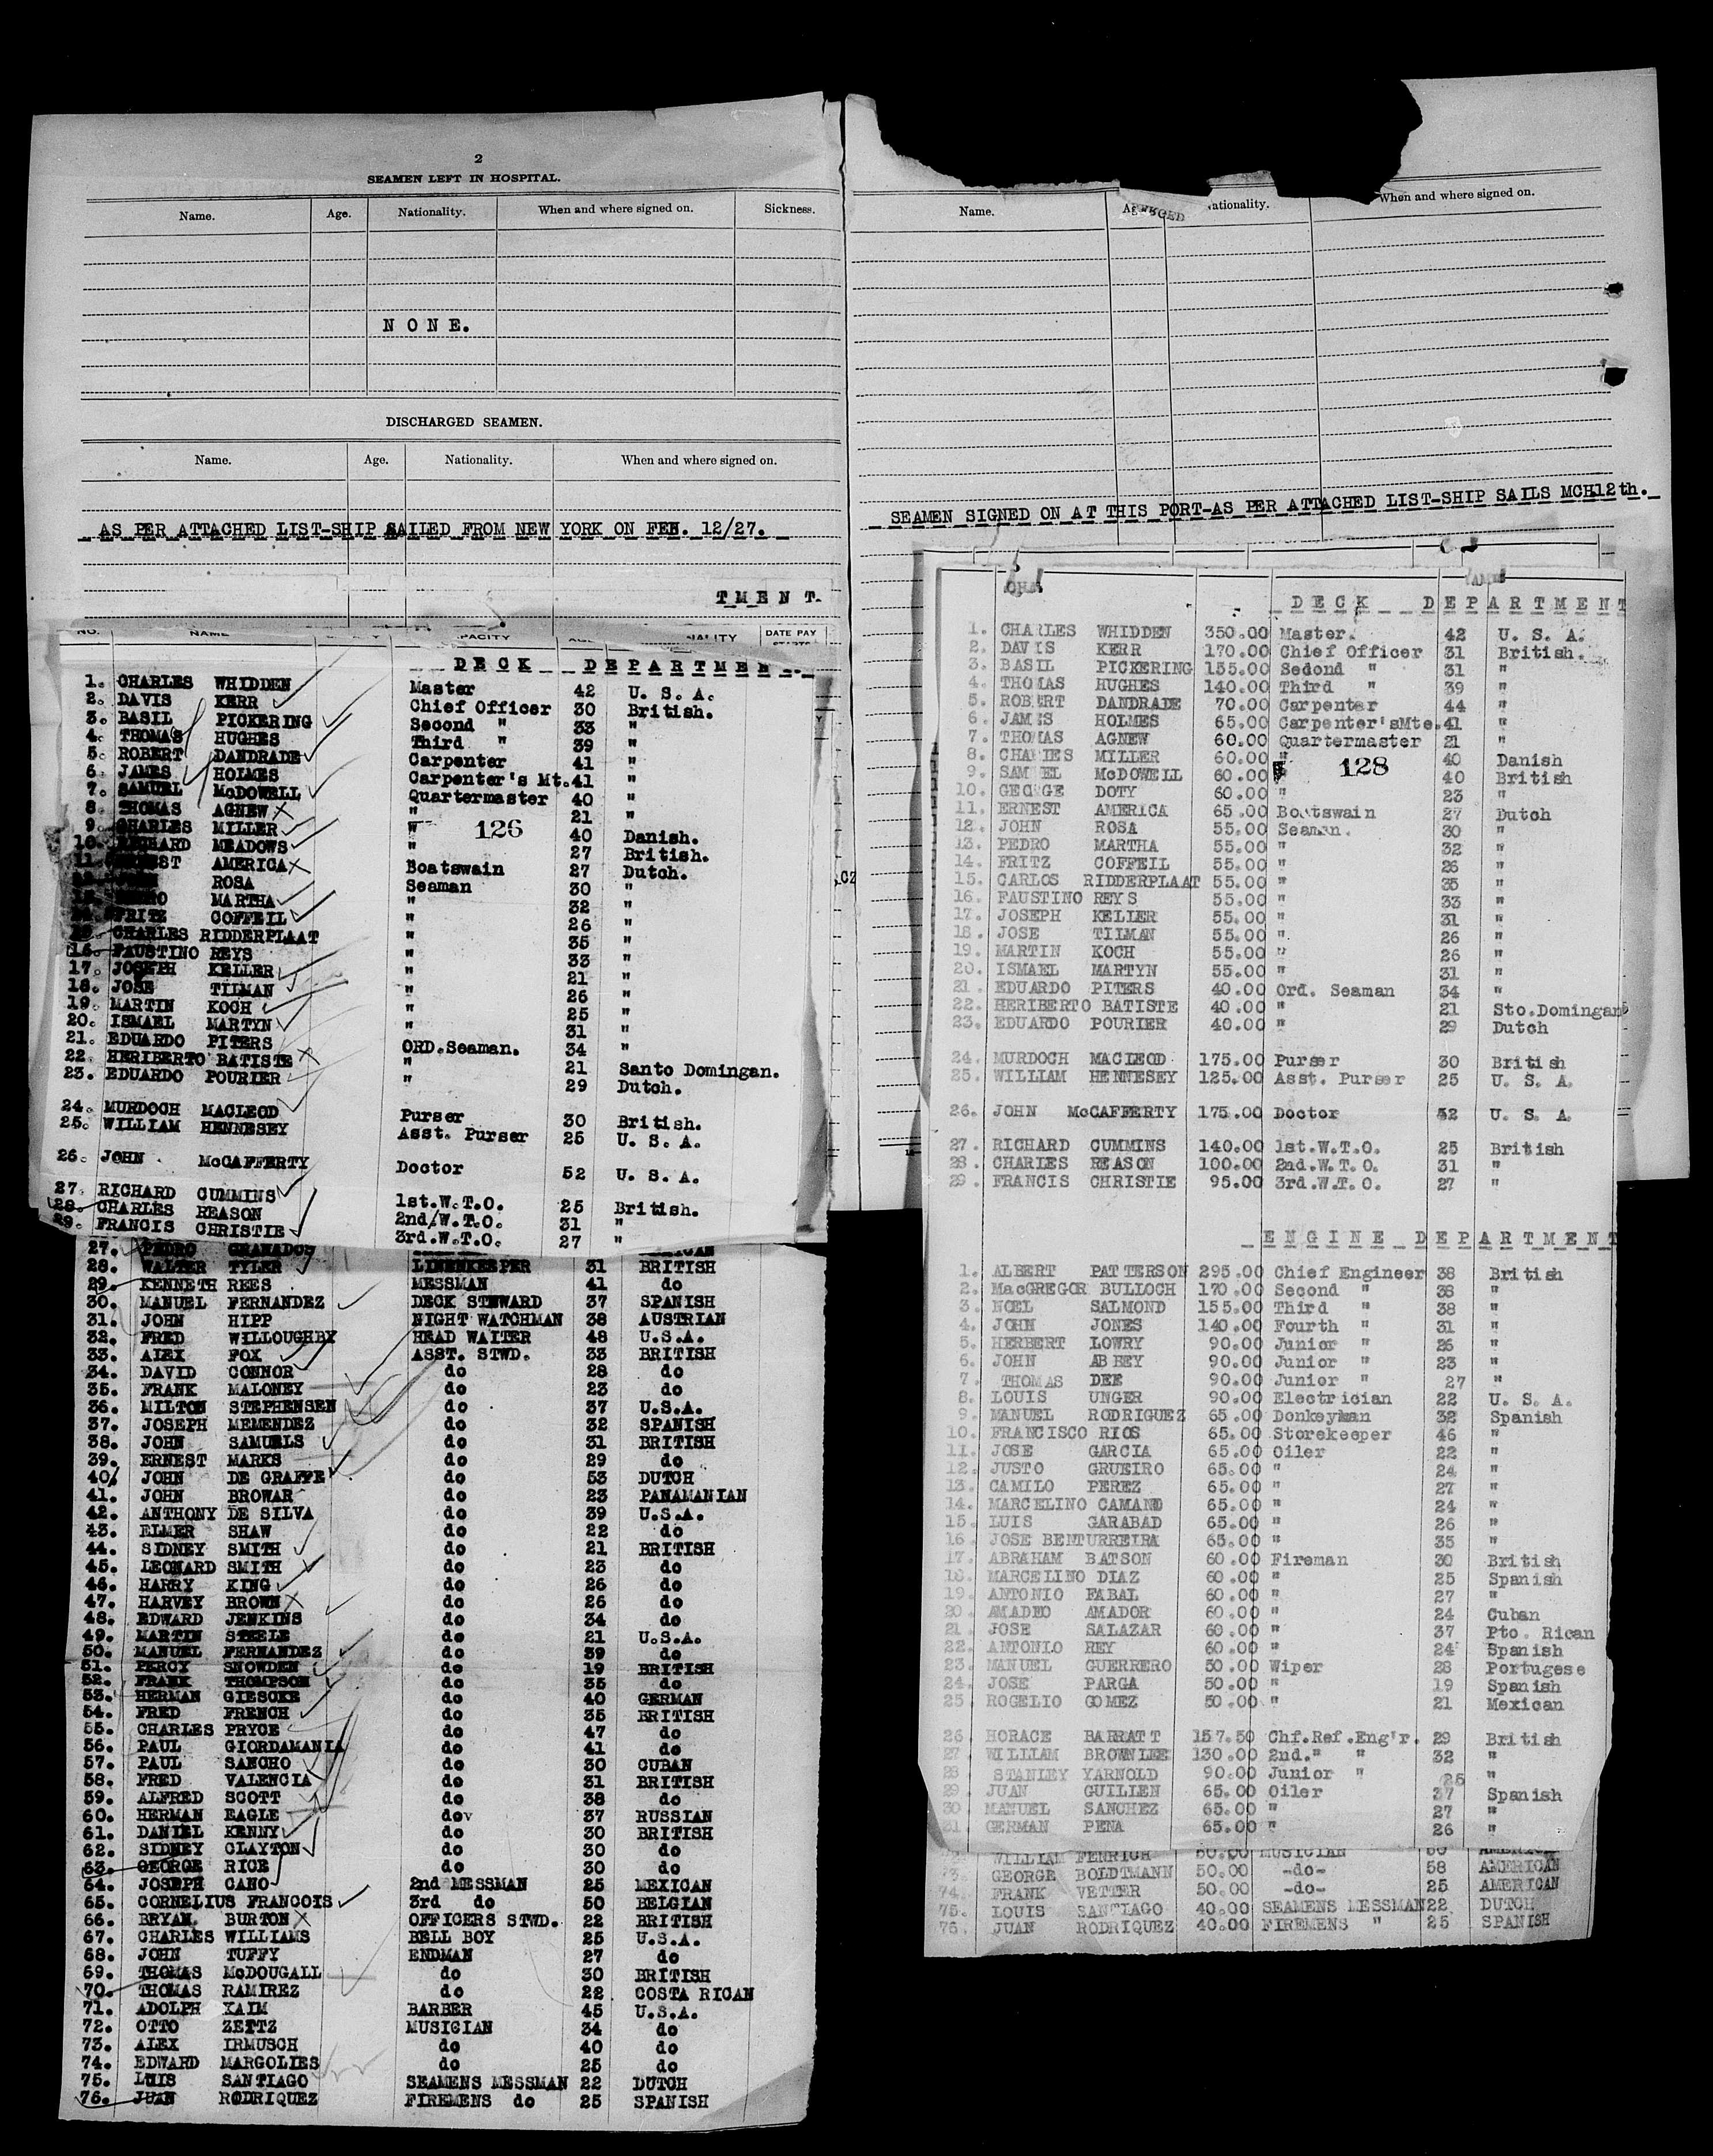 2
SEAMEN LEFT IN HOSPITAL.
Name. Age. Nationality. When and where signed on. Sickness.
N O N E.
DISCHARGED SEAMEN.
Name. Age. Nationality. When and where signed on.
AS PER ATTACHED LIST-SHIP SAILED FROM NEW YORK ON FEH. 12/27.
T M E N T.
NO. NAME DATE PAY
D E C K D E P A R T M E N
1. CHARLES WHIDDEN Master 42 U. S. A.
2. DAVIS KERR Chief Officer 30 British.
3. BASIL PICKERING Second " 33 "
4. THOMAS HUGHES Third " 39 "
5. ROBERT DANDRADE Carpenter 41 "
6. JAMES HOLMES Carpenter's Mt. 41 "
7. SAMUEL McDOWELL Quartermaster 40 "
8. THOMAS AGNEW " 21 "
126
9. CHARLES MILLER " 40 Danish.
10. RICHARD MEADOWS " 27 British.
11. ERNEST AMERICA Boatswain 27 Dutch.
ROSA Seaman 30 "
MARTHA " 32 "
FRITZ COFFEIL " 26 "
15. CHARLES RIDDERPLAAT " 35 "
16. FAUSTINO REYS " 33 "
17. JOSEPH KELLER " 21 "
18. JOSE TILMAN " 26 "
19. MARTIN KOCH " 25 "
20. ISMAEL MARTYN " 31 "
21. EDUARDO PITERS ORD.Seaman. 34 "
22. HERIBERTO BATISTE " 21 Santo Domingan.
23. EDUARDO POURIER " 29 Dutch.
24. MURDOCH MACLEOD Purser 30 British.
25. WILLIAM HENNESEY Asst. Purser 25 U. S. A.
26. JOHN McCAFFERTY Doctor 52 U. S. A.
27. RICHARD CUMMINS 1st.W.T.O. 25 British.
28. CHARLES REASON 2nd/W.T.O. 31 "
29. FRANCIS CHRISTIE 3rd.W.T.O. 27 "
27. PEDRO GRANADOS
28. WALTER TYLER LINENKEEPER 31 BRITISH
29. KENNETH REES MESSMAN 41 do
30. MANUEL FERNANDEZ DECK STEWARD 37 SPANISH
31. JOHN HIPP NIGHT WATCHMAN 38 AUSTRIAN
32. FRED WILLOUGHBY HEAD WAITER 48 U.S.A.
33. ALEX FOX ASST. STWD. 33 BRITISH
34. DAVID CONNOR do 28 do
35. FRANK MALONEY do 23 do
36. MILTON STEPHENSEN do 37 U.S.A.
37. JOSEPH MEMENDEZ do 32 SPANISH
38. JOHN SAMUELS do 31 BRITISH
39. ERNEST MARKS do 29 do
40/ JOHN DE GRAFFE do 53 DUTCH
41. JOHN BROWAR do 23 PANAMANIAN
42. ANTHONY DE SILVA do 39 U.S.A.
43. ELMER SHAW do 22 do
44. SIDNEY SMITH do 21 BRITISH
45. LEONARD SMITH do 23 do
46. HARRY KING do 26 do
47. HARVEY BROWN do 26 do
48. EDWARD JENKINS do 34 do
49. MARTIN STEELE do 21 U.S.A.
50. MANUEL FERNANDEZ do 39 do
51. PERCY SNOWDEN do 19 BRITISH
52. FRANK THOMPSON do 35 do
53. HERMAN GIESCKE do 40 GERMAN
54. FRED FRENCH do 35 BRITISH
55. CHARLES PRYCE do 47 do
56. PAUL GIORDAMANIA do 41 do
57. PAUL SANCHO do 30 CUBAN
58. FRED VALENCIA do 31 BRITISH
59. ALFRED SCOTT do 38 do
60. HERMAN EAGLE do 37 RUSSIAN
61. DANIEL KENNY do 30 BRITISH
62. SIDNEY CLAYTON do 30 do
63. GEORGE RICE do 30 do
64. JOSEPH CANO 2nd MESSMAN 25 MEXICAN
65. CORNELIUS FRANCOIS 3rd do 50 BELGIAN
66. BRYAN. BURTON OFFICERS STWD. 22 BRITISH
67. CHARLES WILLIAMS BELL BOY 25 U.S.A.
68. JOHN TUFFY ENDMAN 27 do
69. THOMAS McDOUGALL do 30 BRITISH
70. THOMAS RAMIREZ do 22 COSTA RICAN
71. ADOLPH XAIM BARBER 45 U.S.A.
72. OTTO ZEITZ MUSICIAN 34 do
73. ALEX IRMUSCH do 40 do
74. EDWARD MARGOLIES do 25 do
75. LUIS SANTIAGO SEAMENS MESSMAN 22 DUTCH
76. JUAN RODRIQUEZ FIREMENS do 25 SPANISH
Name. Nationality. When and where signed on.
SEAMEN SIGNED ON AT THIS PORT-AS PER ATTACHED LIST-SHIP SAILS MCH12th.
D E C K D E P A R T M E N T
1. CHARLES WHIDDEN 350.00 Master. 42 U. S. A.
2. DAVIS KERR 170.00 Chief Officer 31 British.
3. BASIL PICKERING 155.00 Sedond " 31 "
4. THOMAS HUGHES 140.00 Third " 39 "
5. ROBERT DANDRADE 70.00 Carpenter 44 "
6. JAMES HOLMES 65.00 Carpenter'sMte. 41 "
7. THOMAS AGNEW 60.00 Quartermaster 21 "
8. CHARLES MILLER 60.00 " 40 Danish
128
9. SAMUEL McDOWELL 60.00 " 40 British
10. GEORGE DOTY 60.00 " 23 "
11. ERNEST AMERICA 65.00 Boatswain 27 Dutch
12. JOHN ROSA 55.00 Seaman. 30 "
13. PEDRO MARTHA 55.00 " 32 "
14. FRITZ COFFEIL 55.00 " 26 "
15. CARLOS RIDDERPLAAT 55.00 " 35 "
16. FAUSTINO REYS 55.00 " 33 "
17. JOSEPH KELLER 55.00 " 31 "
18. JOSE TILMAN 55.00 " 26 "
19. MARTIN KOCH 55.00 " 26 "
20. ISMAEL MARTYN 55.00 " 31 "
21. EDUARDO PITERS 40.00 Ord. Seaman 34 "
22. HERIBERTO BATISTE 40.00 " 21 Sto.Domingan
23. EDUARDO POURIER 40.00 " 29 Dutch
24. MURDOCH MACLEOD 175.00 Purser 30 British
25. WILLIAM HENNESEY 125.00 Asst. Purser 25 U. S. A.
26. JOHN McCAFFERTY 175.00 Doctor 52 U. S. A.
27. RICHARD CUMMINS 140.00 1st.W.T.O. 25 British
28. CHARLES REASON 100.00 2nd.W.T.O. 31 "
29. FRANCIS CHRISTIE 95.00 3rd.W.T.O. 27 "
E N G I N E D E P A R T M E N T
1. ALBERT PATTERSON 295.00 Chief Engineer 38 British
2. MacGREGOR BULLOCH 170.00 Second " 38 "
3. NOEL SALMOND 155.00 Third " 38 "
4. JOHN JONES 140.00 Fourth " 31 "
5. HERBERT LOWRY 90.00 Junior " 26 "
6. JOHN ABBEY 90.00 Junior " 23 "
7. THOMAS DEE 90.00 Junior " 27 "
8. LOUIS UNGER 90.00 Electrician 22 U. S. A.
9. MANUEL RODRIGUEZ 65.00 Donkeyman 32 Spanish
10. FRANCISCO RIOS 65.00 Storekeeper 46 "
11. JOSE GARCIA 65.00 Oiler 22 "
12. JUSTO GRUEIRO 65.00 " 24 "
13. CAMILO PEREZ 65.00 " 27 "
14. MARCELINO CAMAND 65.00 " 24 "
15. LUIS GARABAD 65.00 " 26 "
16. JOSE BENTURREIRA 65.00 " 35 "
17. ABRAHAM BATSON 60.00 Fireman 30 British
18. MARCELINO DIAZ 60.00 " 25 Spanish
19. ANTONIO FABAL 60.00 " 27 "
20. AMADEO AMADOR 60.00 " 24 Cuban
21. JOSE SALAZAR 60.00 " 37 Pto. Rican
22. ANTONIO REY 60.00 " 24 Spanish
23. MANUEL GUERRERO 50.00 Wiper 28 Portugese
24. JOSE PARGA 50.00 " 19 Spanish
25 ROGELIO GOMEZ 50.00 " 21 Mexican
26 HORACE BARRATT 157.50 Chf.Ref.Eng'r. 29 British
27 WILLIAM BROWNLEE 130.00 2nd." " 32 "
28 STANLEY YARNOLD 90.00 Junior " 25 "
29 JUAN GUILLEN 65.00 Oiler 37 Spanish
30 MANUEL SANCHEZ 65.00 " 27 "
31 GERMAN PENA 65.00 " 26 "
WILLIAM FENRICH 50.00 MUSICIAN 50 AMERICAN
73. GEORGE BOLDTMANN 50.00 -do- 58 AMERICAN
74. FRANK VETTER 50.00 -do- 25 AMERICAN
75. LOUIS SANTIAGO 40.00 SEAMENS MESSMAN 22 DUTCH
76. JUAN RODRIQUEZ 40.00 FIREMENS " 25 SPANISH